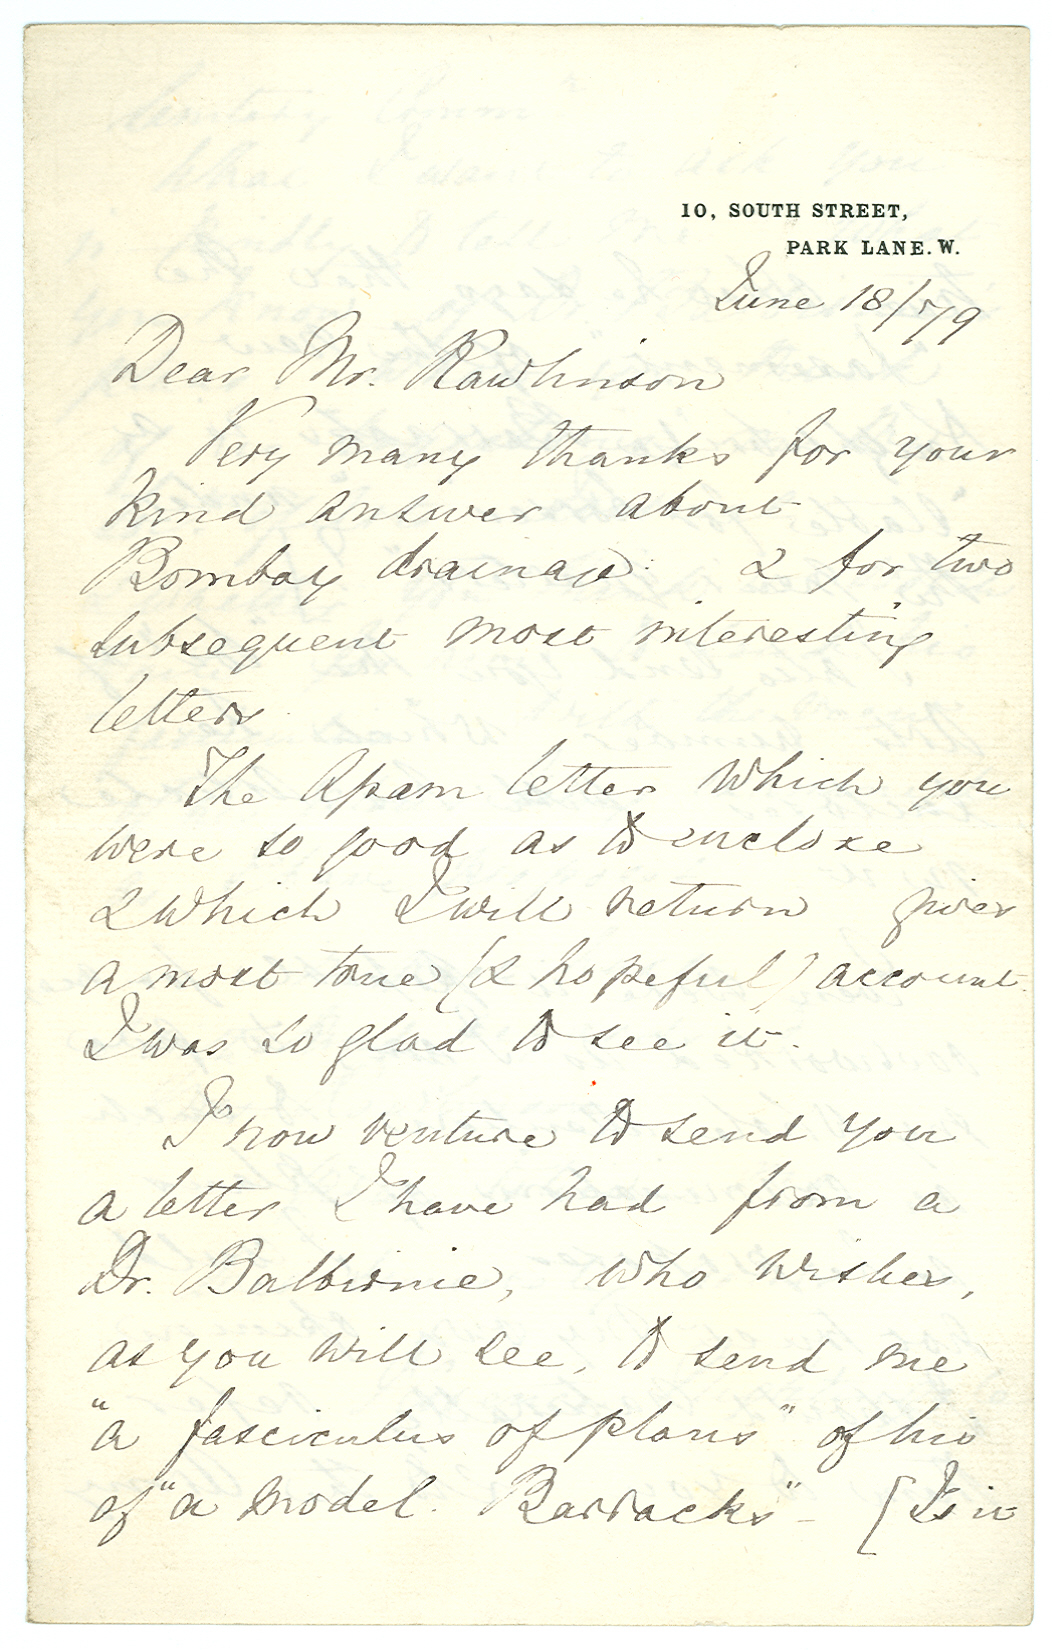 10, SOUTH STREET,
PARK LANE. W.
June 18/79
Dear Mr. Rawlinson
Very many thanks for your
kind answer about
Bombay drainage: & for two
subsequent most interesting
letters.
The Apam letter which you
were so good as to enclose
& which I will return gives
a most true (& hopeful) account.
I was so glad to see it.
I now venture to send you
a letter I have had from a
Dr. Balbirnie, who wishes,
as you will see, to send me
"a fasciculus of plans" of his
of "a model Barracks" – [Is it